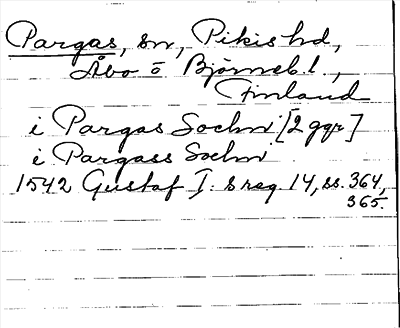 Pargas, sn, Pikis hd,
Åbo o Björneb. l.,
Finland
i Pargas Sochn [2 ggr]
i Pargass Sochn
1542 Gustaf I: s reg. 14, ss. 364,
365.